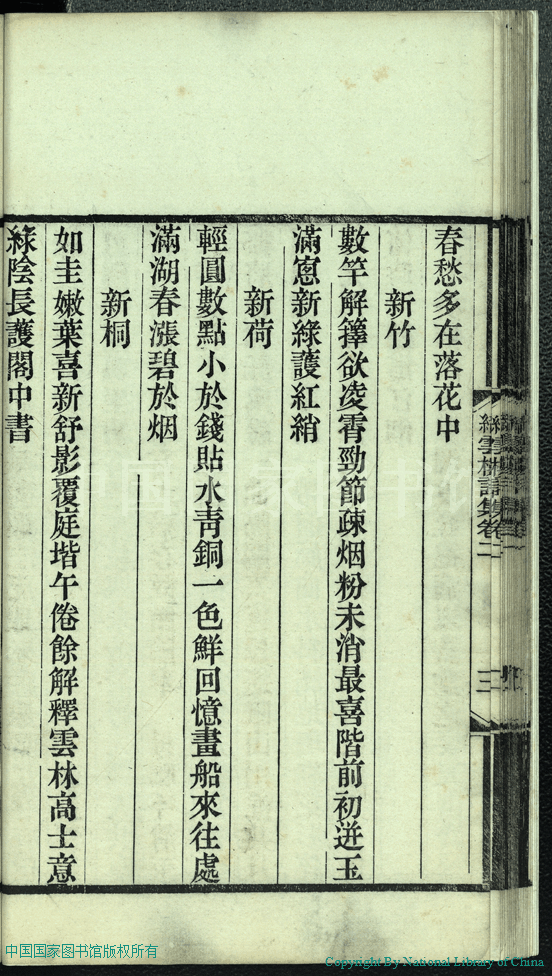 春愁多在落花中
新竹
數竿解籜欲凌霄勁節疎烟粉未消最喜階前初迸玉
滿窻新綠護紅綃
新荷
輕圓數點小於錢貼水靑銅一色鮮回憶畫船來往處
滿湖春漲碧於烟
新桐
如圭嫩葉喜新舒影覆庭堦午倦餘解釋雲林高士意
綠陰長護閣中書
卷二
三
中国国家图书馆版权所有
Copyright By National Library of China